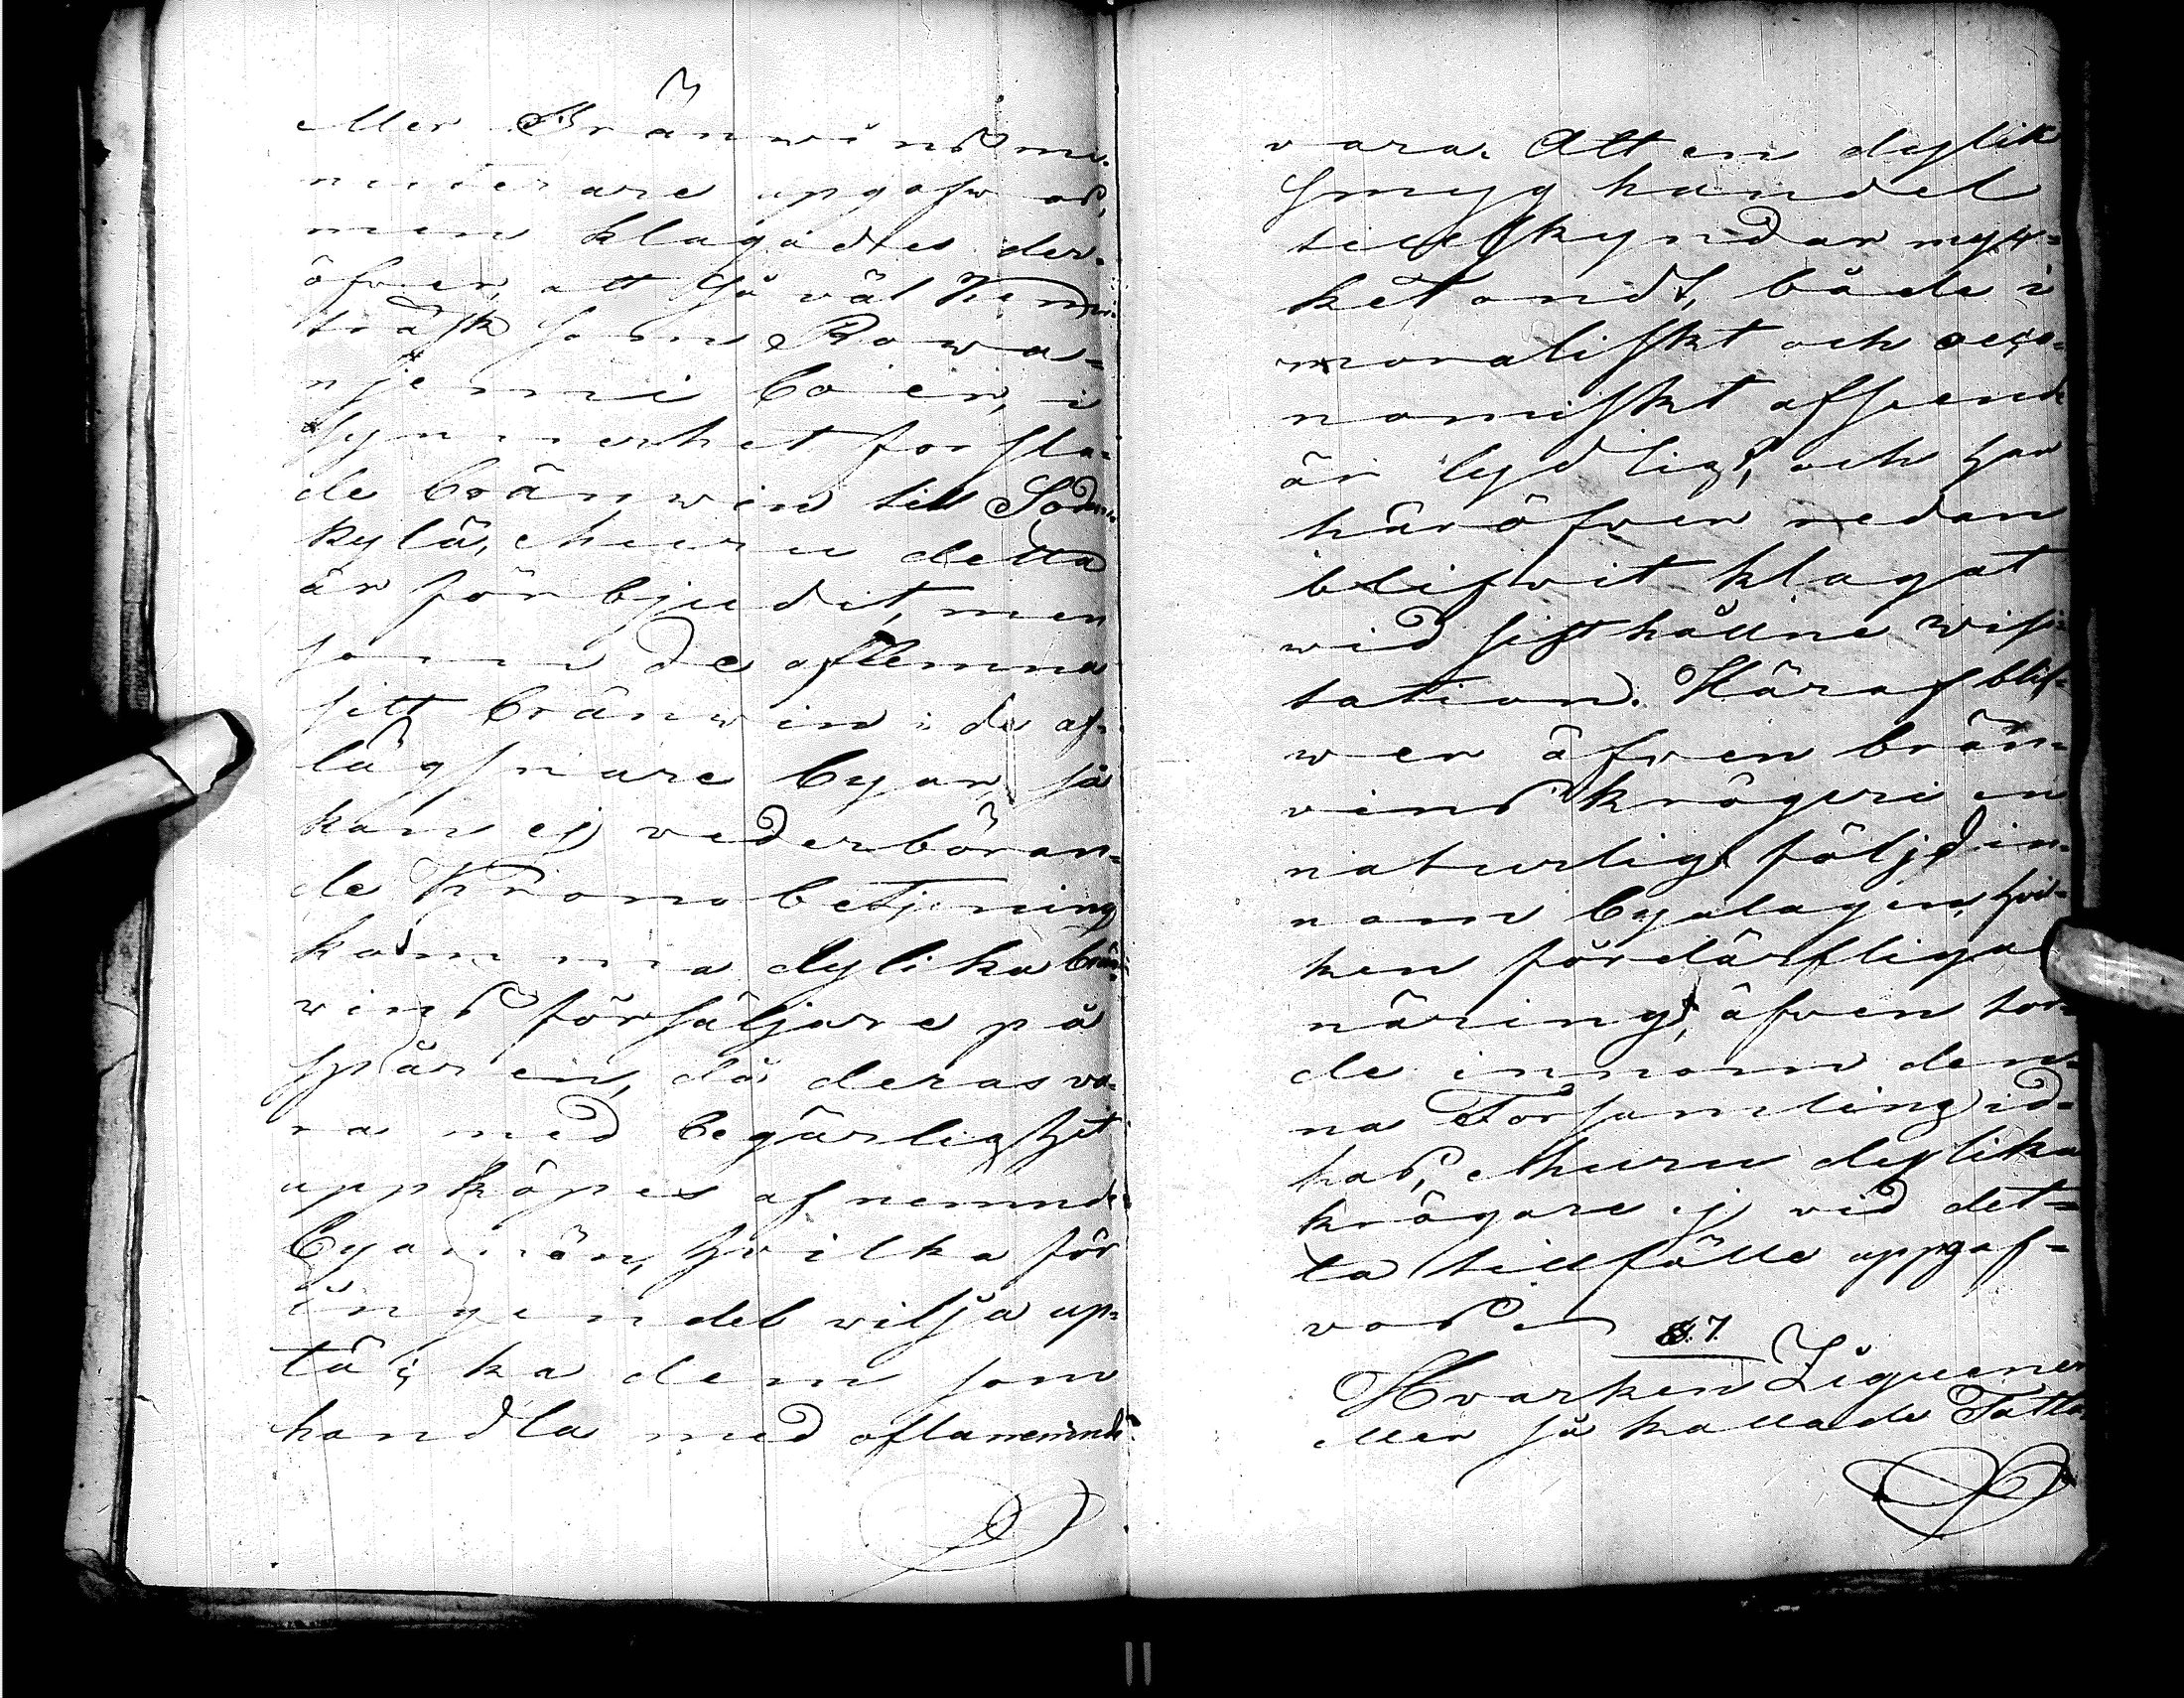 eller Bränwins mi-
nuterare uppgafs,
men klagades der-
öfver, att så väl Kemi-
träsk som Rowa-
njemi boer, i
synnerhet forsla-
de bränwin till Sodan-
kylä, ehuru detta
är förbjudit, men
som de aflemna
sitt bränwin i de af-
lägsnare byar, så
kan ej vederböran-
de Kronobetjening
komma dylika brän-
vins försäljare på
spåren, då deras va-
ra med begärlighet
uppköpes af nemnde
Byamän, hvilka för
ingen del vilja up-
täcka dem som
handla med oftanemnde
vara. Att en dylik
smyghandel
tillskyndar myc-
ket ondt, både i
moraliskt och oeco-
nomiskt afseende
är tydligt, och har
häröfver redan
blifwit klagat
wid sist hållne wisi-
tation. Häraf blif-
wer äfven brän-
vins krögeri en
naturlig följd in-
nom byalagen, hvil-
ken fördärfliga
näring, äfven tor-
de innom den-
na Församling id-
kas, ehuru dylika
krögare ej vid det-
ta tillfälle uppgaf-
vos.
§. 7.
Hvarken Ziguener
eller så kallade Tatta